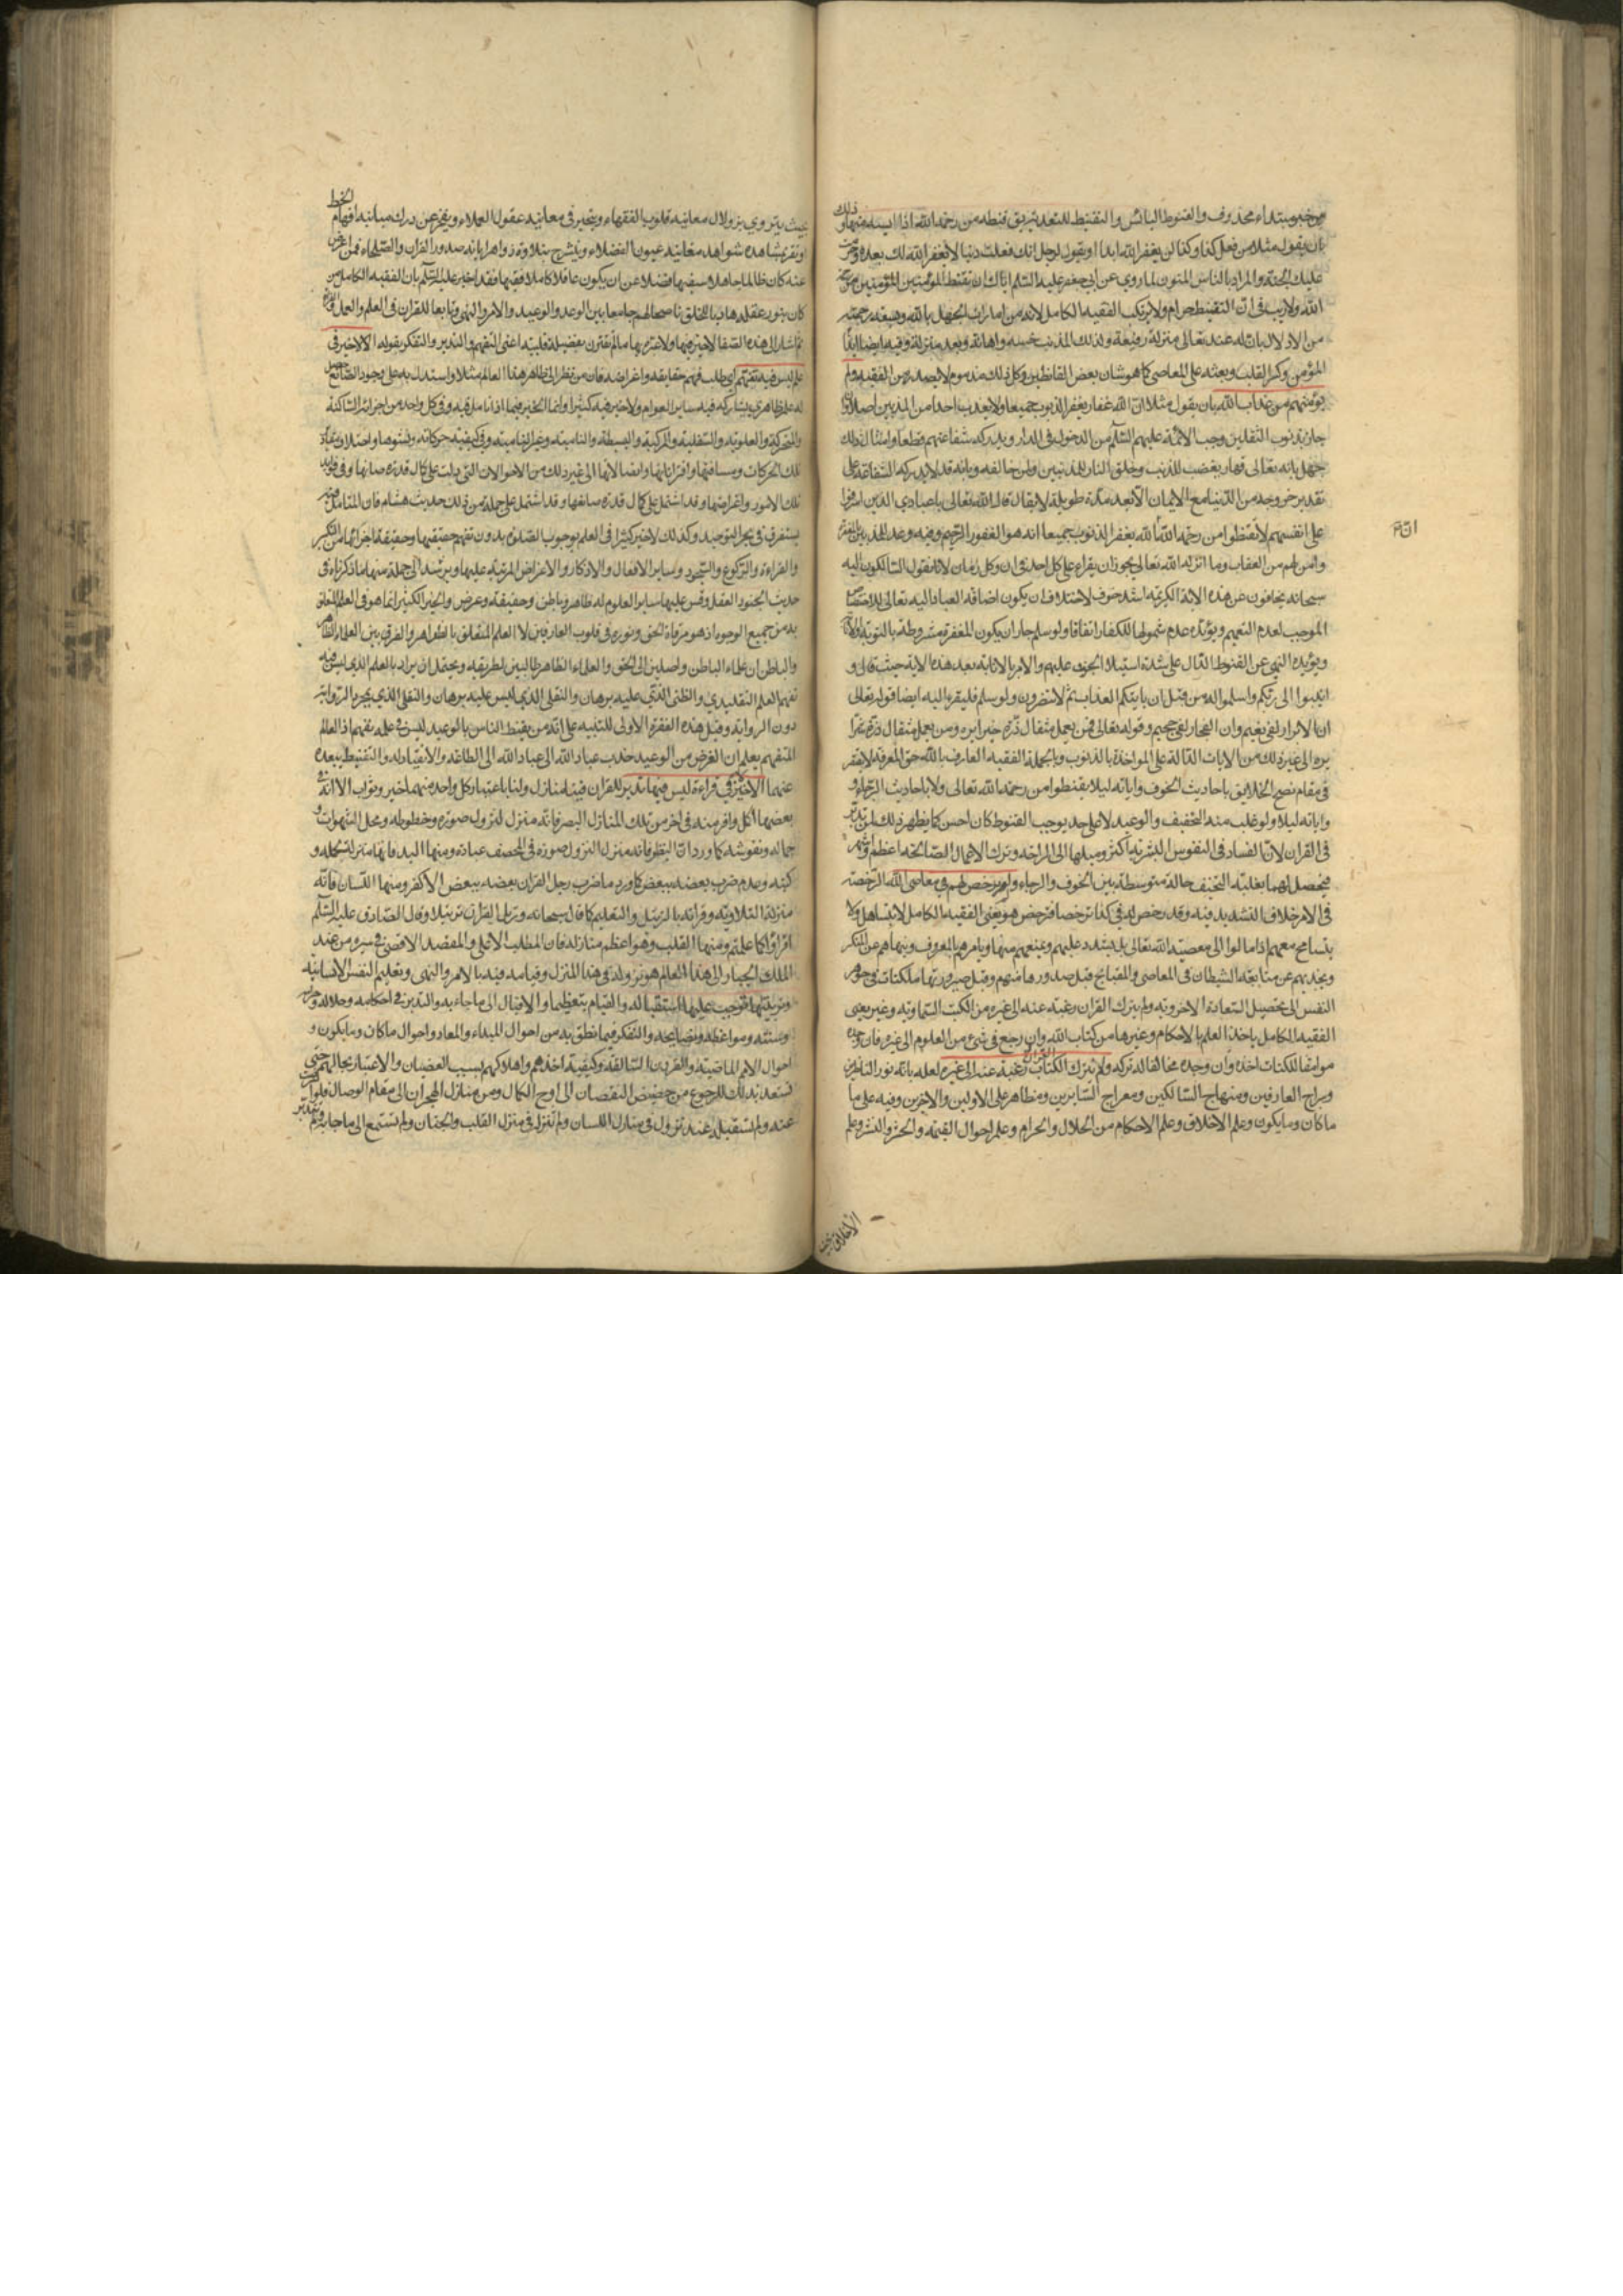 هو خبر مبتداء محذوف والقنوط اليائس والتقنيط للتعدية يق قنطه من رحمة الله اذا ايسه منها وذلك
بان يقول مثلا من فعل كذا وكذا لن يغفر الله ابدا او يقول لرجل انك فعلت ذنبا لا يغفر الله لك بعده وحرمت
عليك الجنة والمراد بالناس المؤمنون لما روي عن ابي جعفر عليه السلم اياك ان تقنط المؤمنين من رحمة
الله ولا ريب في ان التقنيط حرام ولا يرتكبه الفقيه الكامل لانه من امارات الجهل بالله وسعة رحمته
من الاذلال بان له عند تعالى منزلة رفيعة ولذلك المذنب خسة واهانة وبعد منزلة وفيه ايضا ايذاء
المؤمن وكسر القلب وبعثه على المعاصي كما هو شان بعض القانطين وكل ذلك مذموم لا يصدر من الفقيه ولم
يؤمنهم من عذاب الله بان يقول مثلا ان الله غفار يغفر الذنوب جميعا ولا يعذب احدا من المذنبين اصلا وان
جاء بذنوب الثقلين وحب الائمة عليهم السلم من الدخول في الدار ويدركه شفاعتهم قطعا وامثال ذلك
جهل بانه تعالى قهار يغضب للذنب وخلق النار للمذنبين ولمن خالفه وبانه قد لا يدركه الشفاعة على
تقدير خروجه من الدنيا مع الايمان الا بعد مدة طويلة لا يقال قال الله تعالى يا عبادي الذين اسرفوا
على انفسهم لا تقنطوا من رحمة الله ان الله يغفر الذنوب جميعا انه هو الغفور الرحيم وفيه وعد للمذنبين بالمغفرة
وامن لهم من العقاب وما انزله الله تعالى يجوز ان يقراء على كل احد في ان وكل زمان لانا نقول السالكون اليه
سبحانه يخافون عن هذه الاية الكريمة اشد خوف لاحتلاف ان يكون اضافة العباد اليه تعالى للاختصاص
الموجب لعدم التعميم ويؤيده عدم شمولها للكفار اتفاقا ولو سلم جاز ان يكون المغفرة مشروطة بالتوبة
ويؤيده النهي عن القنوط الدال على شدة استيلاء الخوف عليهم والامر بالانابة بعد هذه الاية حيث قال و
انيبوا الى ربكم واسلموا له من قبل ان ياتيكم العذاب ثم لا تنصرون ولو سلم فليقرء اليه ايضا قوله تعالى
ان الابرار لفي نعيم وان الفجار لفي جحيم وقوله تعالى فمن يعمل مثقال ذرة خيرا يره ومن يعمل مثقال ذرة شرا
يره الى غير ذلك من الايات الدالة على المواخذة بالذنوب وبالجملة الفقيه العارف بالله حق المعرفة لا يقتصر
في مقام نصح الخلايق باحاديث الخوف واياته ليلا يقنطوا من رحمة الله تعالى ولا باحاديث الرجاء
واياته ليلا ولو غلب منه التخفيف والوعيد لا على حد يوجب القنوط كان احسن كما يظهر ذلك لمن تدبر
في القران لان الفساد في النفوس البشرية اكثر وميلها الى الراحة وترك الاعمال الصالحة اعظم
فيحصل لهما بغلبة التخفيف حالة متوسطة بين الخوف والرجاء ولم يرخص لهم في معاصي الله الرخصة
في الامر خلاف التشديد فيه وقد رخص له في كذا ترخيصا فترخص هو يعني الفقيه الكامل لا يتساهل ولا
يتسامح معهم اذا مالوا الى معصية الله تعالى بل يشدد عليهم ويمنعهم منها ويامرهم بالمعروف وينهاهم عن المنكر
ويحذيهم عن متابعة الشيطان في المعاصي والقبايح قبل صدورها منهم وقبل صيرورتها ملكات في جوهر
النفس الى تحصيل السعادة الاخروية ولم يترك القران رغبة عنه الى غيره من الكتب السماوية وغيره يعني
الفقيه الكامل ياخذ العلم بالاحكام وغيرها من كتاب الله وان رجع في شيء من العلوم الى غيره فان وجده
موافقا للكتاب اخذه وان وجده مخالفا له تركه ولم يترك الكتاب رغبة عنه الى غيره لعلمه بانه نور الناظرين
وسراج العارفين ومنهاج السالكين ومعراج السايرين ومظاهر على الاولين والاخرين وفيه علم ما
ما كان وما يكون وعلم الاخلاق وعلم الاحكام من الحلال والحرام وعلم احوال القيمة والحشر والنشر وعلم
الاخلاق
بحيث يتروي بزولال معانيه قلوب الفقهاء ويتحير في معانيه عقول العلماء ويعجز عن درك مبانيه افهام الخطباء
وتقر بمشاهدة شواهد معانيه عيون الفضلاء وينشرح بتلاوته زواهر اياته صدور القراء والصلحاء فمن اعرض
عنه كان ظالما جاهلا سفيها فضلا عن ان يكون عاقلا كاملا فقيها فقد اخبر عليه السلم بان الفقيه الكامل من
كان بنور عقله هاديا للخلق ناصحا لهم جامعا بين الوعد والوعيد والامر والنهي وتابعا للقران في العلم والعمل
ثم اشار الى هذه الصفا لا خير فيها ولا عبرة بها ما لم تقترن بفضيلة قلبية اعني التفهم والتدبر والتفكر بقوله الا لا خير في
علم ليس فيه تفهم اي طلب فهم حقايقه واغراضه فان من نظر الى ظاهر هذا العالم مثلا واستدل به على وجود الصانع
له علم ظاهري يشاركه فيه ساير العوام ولا خير فيه كثيرا وانما الخير فيما اذا تامل فيه وفي كل واحد من اجزائه الساكنة
والمتحركة والعلوية والسفلية والمركبة والبسيطة والنامية وغير النامية وفي كيفية حركاته ونشوها واختلاف
تلك الحركات ومسافتها واقتراناتها واتصالاتها الى غير ذلك من الاحوالات التي دلت على كمال قدرة صانعها وفي
تلك الامور واغراضها وقد اشتمل على كمال قدرة صانعها وقد اشتمل على جملة من ذلك حديث هشام فان المتامل
يستغرق في بحر التوحيد وكذلك لا خير كثيرا في العلم بوجوب الصلوة بدون تفهم حقيقتها وحقيقة اجزائها من التكبير
والقراءة والركوع والسجود وساير الافعال والاذكار والاغراض المترتبة عليها ويرشد الى جملة منها ما ذكرناه في
حديث الجنود العقل وقس عليها ساير العلوم له ظاهر وباطن وحقيقة وعرض والخير الكثير انما هو في العلم المتعلق
به من جميع الوجوه اذ هو مرقاة الحق ونوره في قلوب العارفين لا العلم المتعلق بالظواهر والفرق بين العلماء الظاهر
والباطن ان علماء الباطن واصلين الى الحق والعلماء الظاهر طالبين لطريقه ويحتمل ان يراد بالعلم الذي ليس فيه
تفهم العلم التقليدي والظني الذي عليه برهان والنقلي الذي ليس عليه برهان والنقلي الذي بمجرد الرواية
دون الرواية وقيل هذه الفقرة الاولى للتنبيه على ان من يقنط الناس بالوعيد ليس في علمه تفهم اذ العالم
المتفهم يعلم ان الغرض من الوعيد جذب عباد الله الى عباد الله الى الطاعة والانقياد له والتقنيط يبعده
عنهما الا لا خير في قراءة ليس فيها تدبر للقران فينا منازل ولنا باعتبار كل واحد منهما خير وثواب الا انه في
بعضها اكل وافر منه في اخر من تلك المنازل البصر فانه منزل لنزول صوره وخطوطه ومحل الشهوات و
جماله ونقوشه كما ورد ان النظر فانه منزل النزول صوره في المصحف عبادة ومنها اليد فانها منزلة لشكله و
كتبه وعدم ضرب بعضه ببعض كما ورد ما ضرب رجل القران بعضه ببعض الا كفر ومنها اللسان فانه
منزلة التلاوته وقرائته بالترتيل والتعليم كما قال سبحانه ورتل القران ترتيلا وقال الصادق عليه السلم
اقرؤا كما علمتم ومنها القلب وهو اعظم منازله فان المطلب الاعلى والمقصد الاقصى في سيره من عند
الملك الجبار الى هذا العالم هو نزوله في هذا المنزل وقيامه فيه بالامر والنهي وتعليم النفس الانسانية
وتربيتها فوجب عليها استقباله والقيام بتعظيما والاقبال الى ما جاء به والتدبر في احكامه وحلاله وحرامه
وسننه ومواعظه ونصايحه والتفكر فيما نطق به من احوال المبداء والمعاد واحوال ما كان وما يكون و
احوال الامم الماضية والقرون السالفة وكيفية اخذهم واهلاكهم بسبب العصيان والاعتبار بحالهم حتى
تستعد بذلك للرجوع من حضيض النقصان الى اوج الكمال ومن منازل الهجران الى مقام الوصال فلو
عنه ولم تستقبله عند نزوله في منازل اللسان ولم تنزله في منزل القلب والجنان ولم تستمع الى ما جاء به